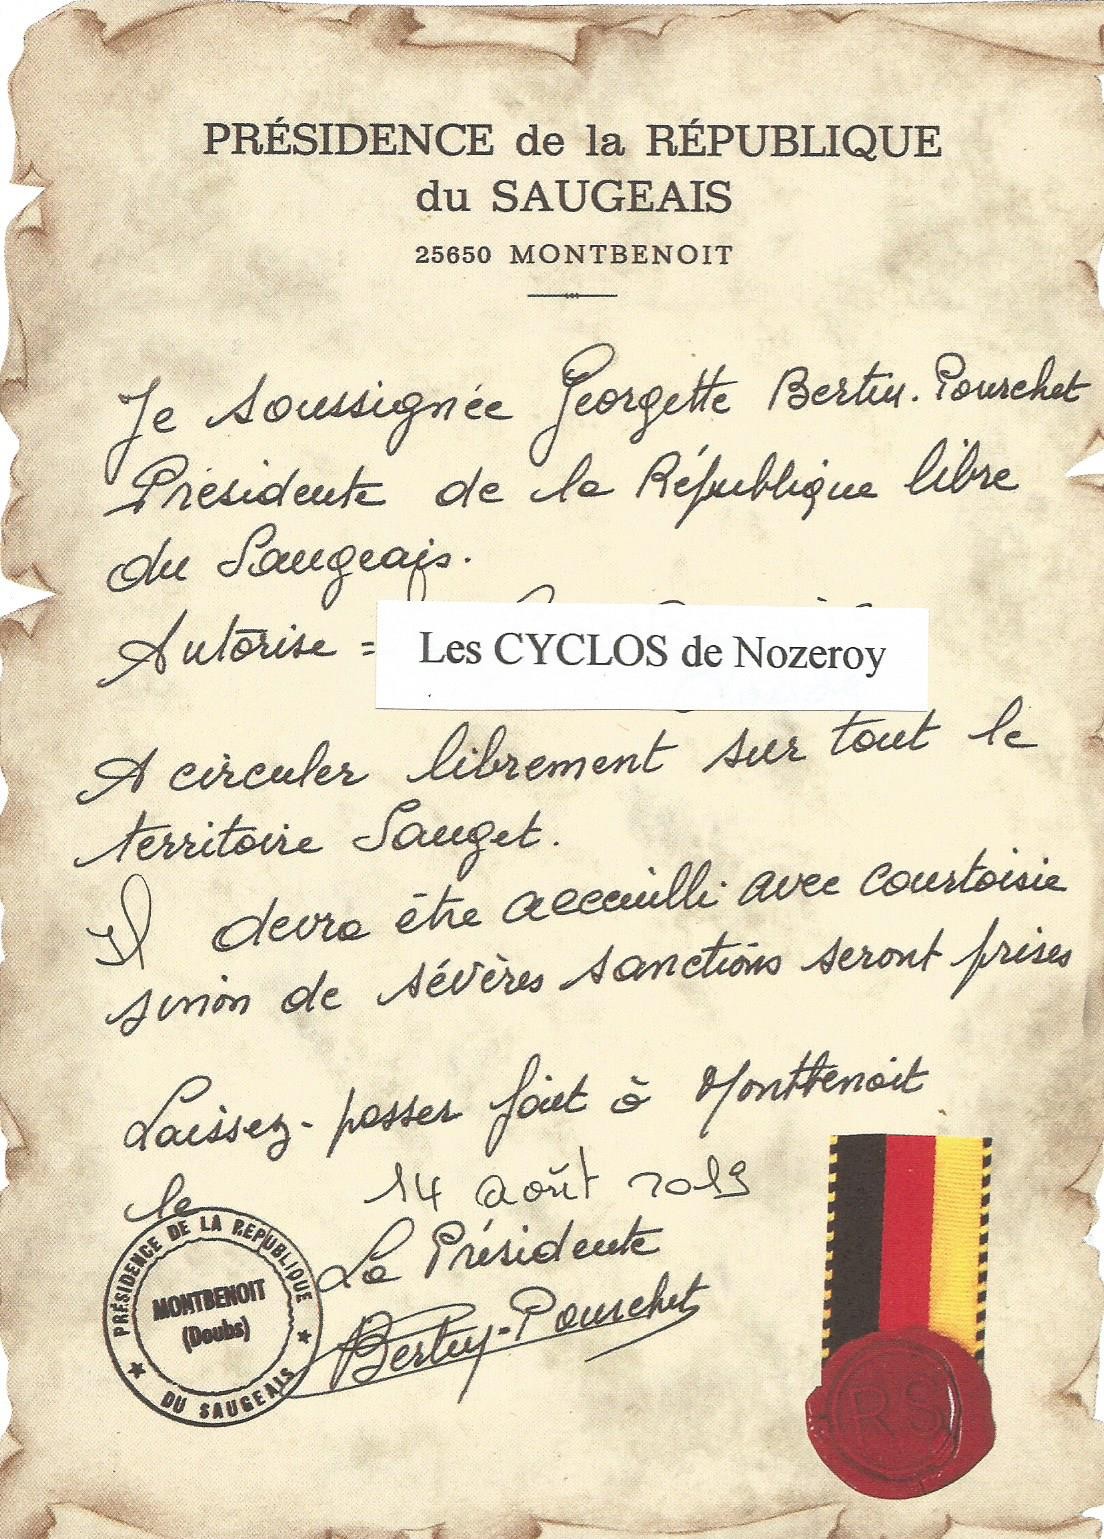 PRÉSIDENCE de la RÉPUBLIQUE
du SAUGEAIS
25650 MONTBENOIT
Je soussignée Georgette Bertin-Pourchet
Présidente de la République libre
du Saugeais.
Autorise =
Les CYCLOS de Nozeroy
A circuler librement sur tout le
territoire Sauget.
Il devra être accueilli avec courtoisie
sinon de sévères sanctions seront prises
Laissez-passer fait à Montbenoit
le 14 août 2019
La Présidente
Bertin-Pourchet
PRÉSIDENCE DE LA REPUBLIQUE
MONTBENOIT
(Doubs)
DU SAUGEAIS
RS